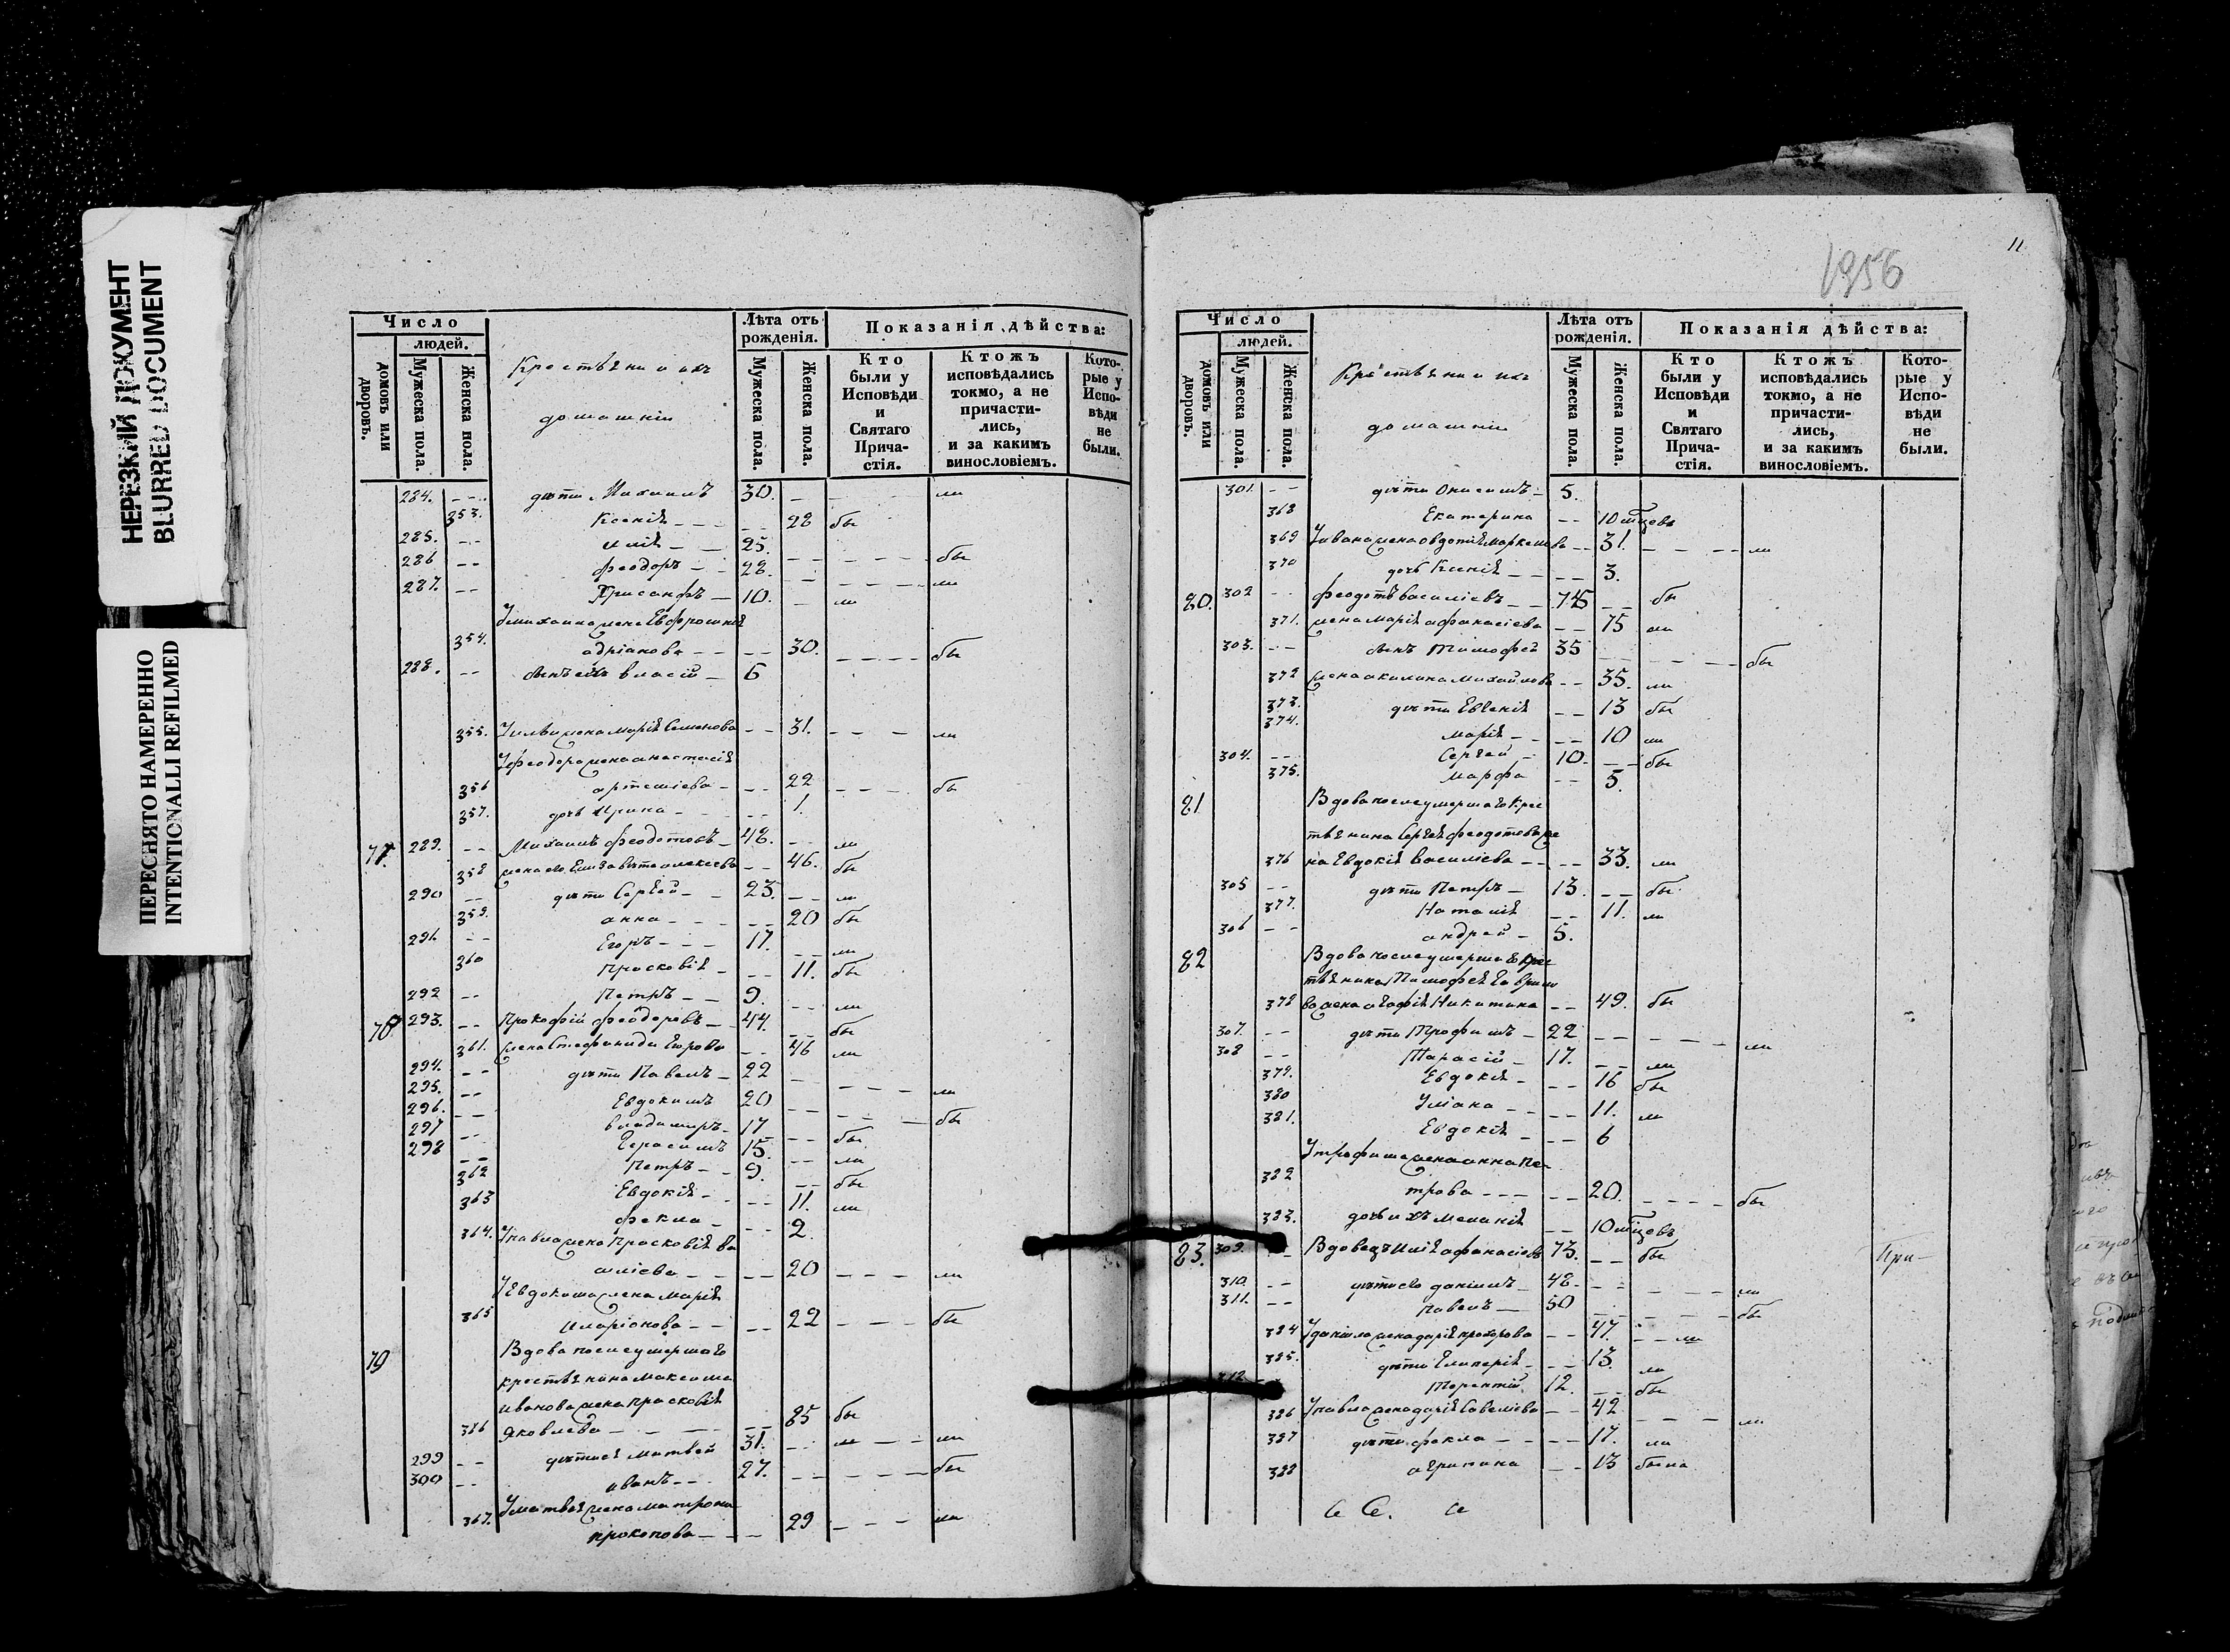 НЕРЕЗКИЙ ДОКУМЕНТ
BLURRED DOCUMENT
ПЕРЕСНЯТО НАМЕРЕННО
INTENTIONALLI REFILMED
Число
людей.
домовъ или дворовъ.
Мужеска пола.
Женска пола.
Крестьяни и ихъ
домашніи
Лѣта отъ рожденія.
Мужеска пола.
Женска пола.
Показанія дѣйства:
Кто были у Исповѣди и Святаго Прича-стія.
Ктожъ исповѣдались токмо, а не причасти-лись, и за какимъ винословіемъ.
Кото-рые у Испо-вѣди не были.
284. дѣти Михаилъ 30. ли
353. Ксенія 28 бы
285. Илія 25.
286 Феодоръ 28. бы
287. Хрисанфъ 10. ли ли
У михаила жена Евфросинія
354. адріанова 30. бы
288. сынъ ихъ власій 6
355. У иліи жена Марія Семенова 31. ли
У феодора жена анастасія
356 артеміева 22 бы
357. дочь Ирина 1.
77. 289. Михаилъ Феодотовъ 48. ли
358 жена его Елизавета алексѣева 46. бы
290 дѣти Сергѣй 23. ли
359. анна 20 бы
291. Егоръ 17. ли
360 Прасковія 11. бы
292 Петръ 9. ли
78 293. Прокофій Феодоровъ 44. бы
361. жена Стефанида Егорова 46 ли
294. дѣти Павелъ 22 ли
295. Евдокимъ 20 бы
296. владимиръ 17 бы
297 Герасимъ 15. ли
298 Петръ 9. бы
362 Евдокія 11. ли
363 Фекла 2.
364. У павла жена Прасковія ва
силіева 20 ли
У Евдокима жена Марія
365 Иларіонова 22 бы
79 Вдова после умершаго
крестьянина Максима
иванова жена прасковія
366 Яковлева 85 бы
299 дѣти ея Матвей 31. ли ли
300 иванъ 27. бы
У матвея жена матрона
367. прокопова 29 ли
11
1956
Число
людей.
домовъ или дворовъ.
Мужеска пола.
Женска пола.
Крестьяни и ихъ
домашніи
Лѣта отъ рожденія.
Мужеска пола.
Женска пола.
Показанія дѣйства:
Кто были у Исповѣди и Святаго Прича-стія.
Ктожъ исповѣдались токмо, а не причасти-лись, и за какимъ винословіемъ.
Кото-рые у Испо-вѣди не были.
301. дѣти Онисимъ 5.
368 Екатерина 10 мѣцовъ
369 У ивана жена овдотія маркелова 31. ли
370 дочь Ксенія 3.
80. 302 Феодотъ василіевъ 745 бы
371. жена Марія афанасіева 75 ли
303. сынъ Тимофей 35 бы
372 жена акилина Михайлова 35. ли
373. дѣти Евгенія 13 бы
374. марія 10 ли
304. Сергѣй 10. бы
375. Марфа 5.
81 Вдова после умершаго крес
тьянина Сергѣя Феодотова же
376 на Евдокія Василіева 33. ли
305 дѣти Петръ 13. бы
377. Наталія 11. ли
306 андрей 5.
82 Вдова после умершаго крес
тьянина Тимофея Гаврило
378 ва жена агафія Никитина 49. бы
307. дѣти Трофимъ 22 ли
308 Тарасій 17. ли
379. Евдокія 16 бы
380 Уліана 11. ли
381. Евдокія 6
У трофима жена анна пе
382 трова 20. бы
383. дочь ихъ меланія 10 мѣцовъ
83. 309. Вдовецъ Илія афанасіевъ 73. бы При-
310. дѣти его даніилъ 48. ли
311. павелъ 50 бы
384 У даніила жена дарія прохорова 47. ли
385. дѣти Гликерія 13. ли
312 Терентій 12. бы
386 У павла жена дарія Савеліева 42 ли
387 дѣти фекла 17. ли
388 агрипина 13 была